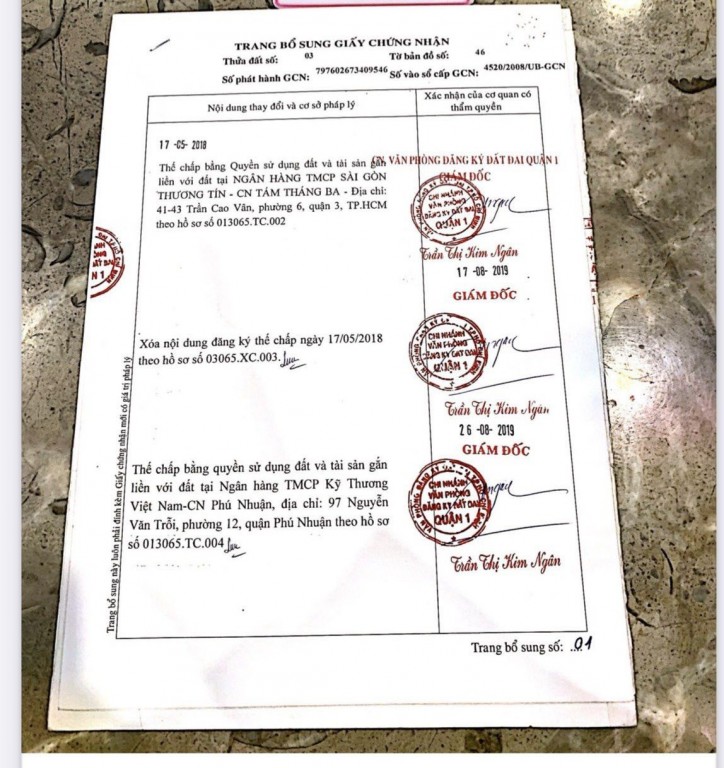 TRANG BỔ SUNG GIẤY CHỨNG NHẬN
Thửa đất số: 03 Tờ bản đồ số: 46
Số phát hành GCN: 797602673409546 Số vào sổ cấp GCN: 4520/2008/UB-GCN
Nội dung thay đổi và cơ sở pháp lý
Xác nhận của cơ quan có
thẩm quyền
17 -05- 2018
Thế chấp bằng Quyền sử dụng đất và tài sản gắn
liền với đất tại NGÂN HÀNG TMCP SÀI GÒN
THƯƠNG TÍN - CN TÁM THÁNG BA - Địa chỉ:
41-43 Trần Cao Vân, phường 6, quận 3, TP.HCM
theo hồ sơ số 013065.TC.002
CN VĂN PHÒNG ĐĂNG KÝ ĐẤT ĐAI QUẬN 1
GIÁM ĐỐC
CHI NHÁNH
VĂN PHÒNG
ĐĂNG KÝ ĐẤT ĐAI
QUẬN 1
Trần Thị Kim Ngân
17 -08- 2019
GIÁM ĐỐC
Xóa nội dung đăng ký thế chấp ngày 17/05/2018
theo hồ sơ số 03065.XC.003.
CHI NHÁNH
VĂN PHÒNG
ĐĂNG KÝ ĐẤT ĐAI
QUẬN 1
Trần Thị Kim Ngân
26 -08- 2019
GIÁM ĐỐC
Thế chấp bằng quyền sử dụng đất và tài sản gắn
liền với đất tại Ngân hàng TMCP Kỹ Thương
Việt Nam-CN Phú Nhuận, địa chỉ: 97 Nguyễn
Văn Trỗi, phường 12, quận Phú Nhuận theo hồ sơ
số 013065.TC.004
CHI NHÁNH
VĂN PHÒNG
ĐĂNG KÝ ĐẤT ĐAI
QUẬN 1
Trần Thị Kim Ngân
Trang bổ sung này luôn phải đính kèm Giấy chứng nhận mới có giá trị pháp lý
Trang bổ sung số: 01